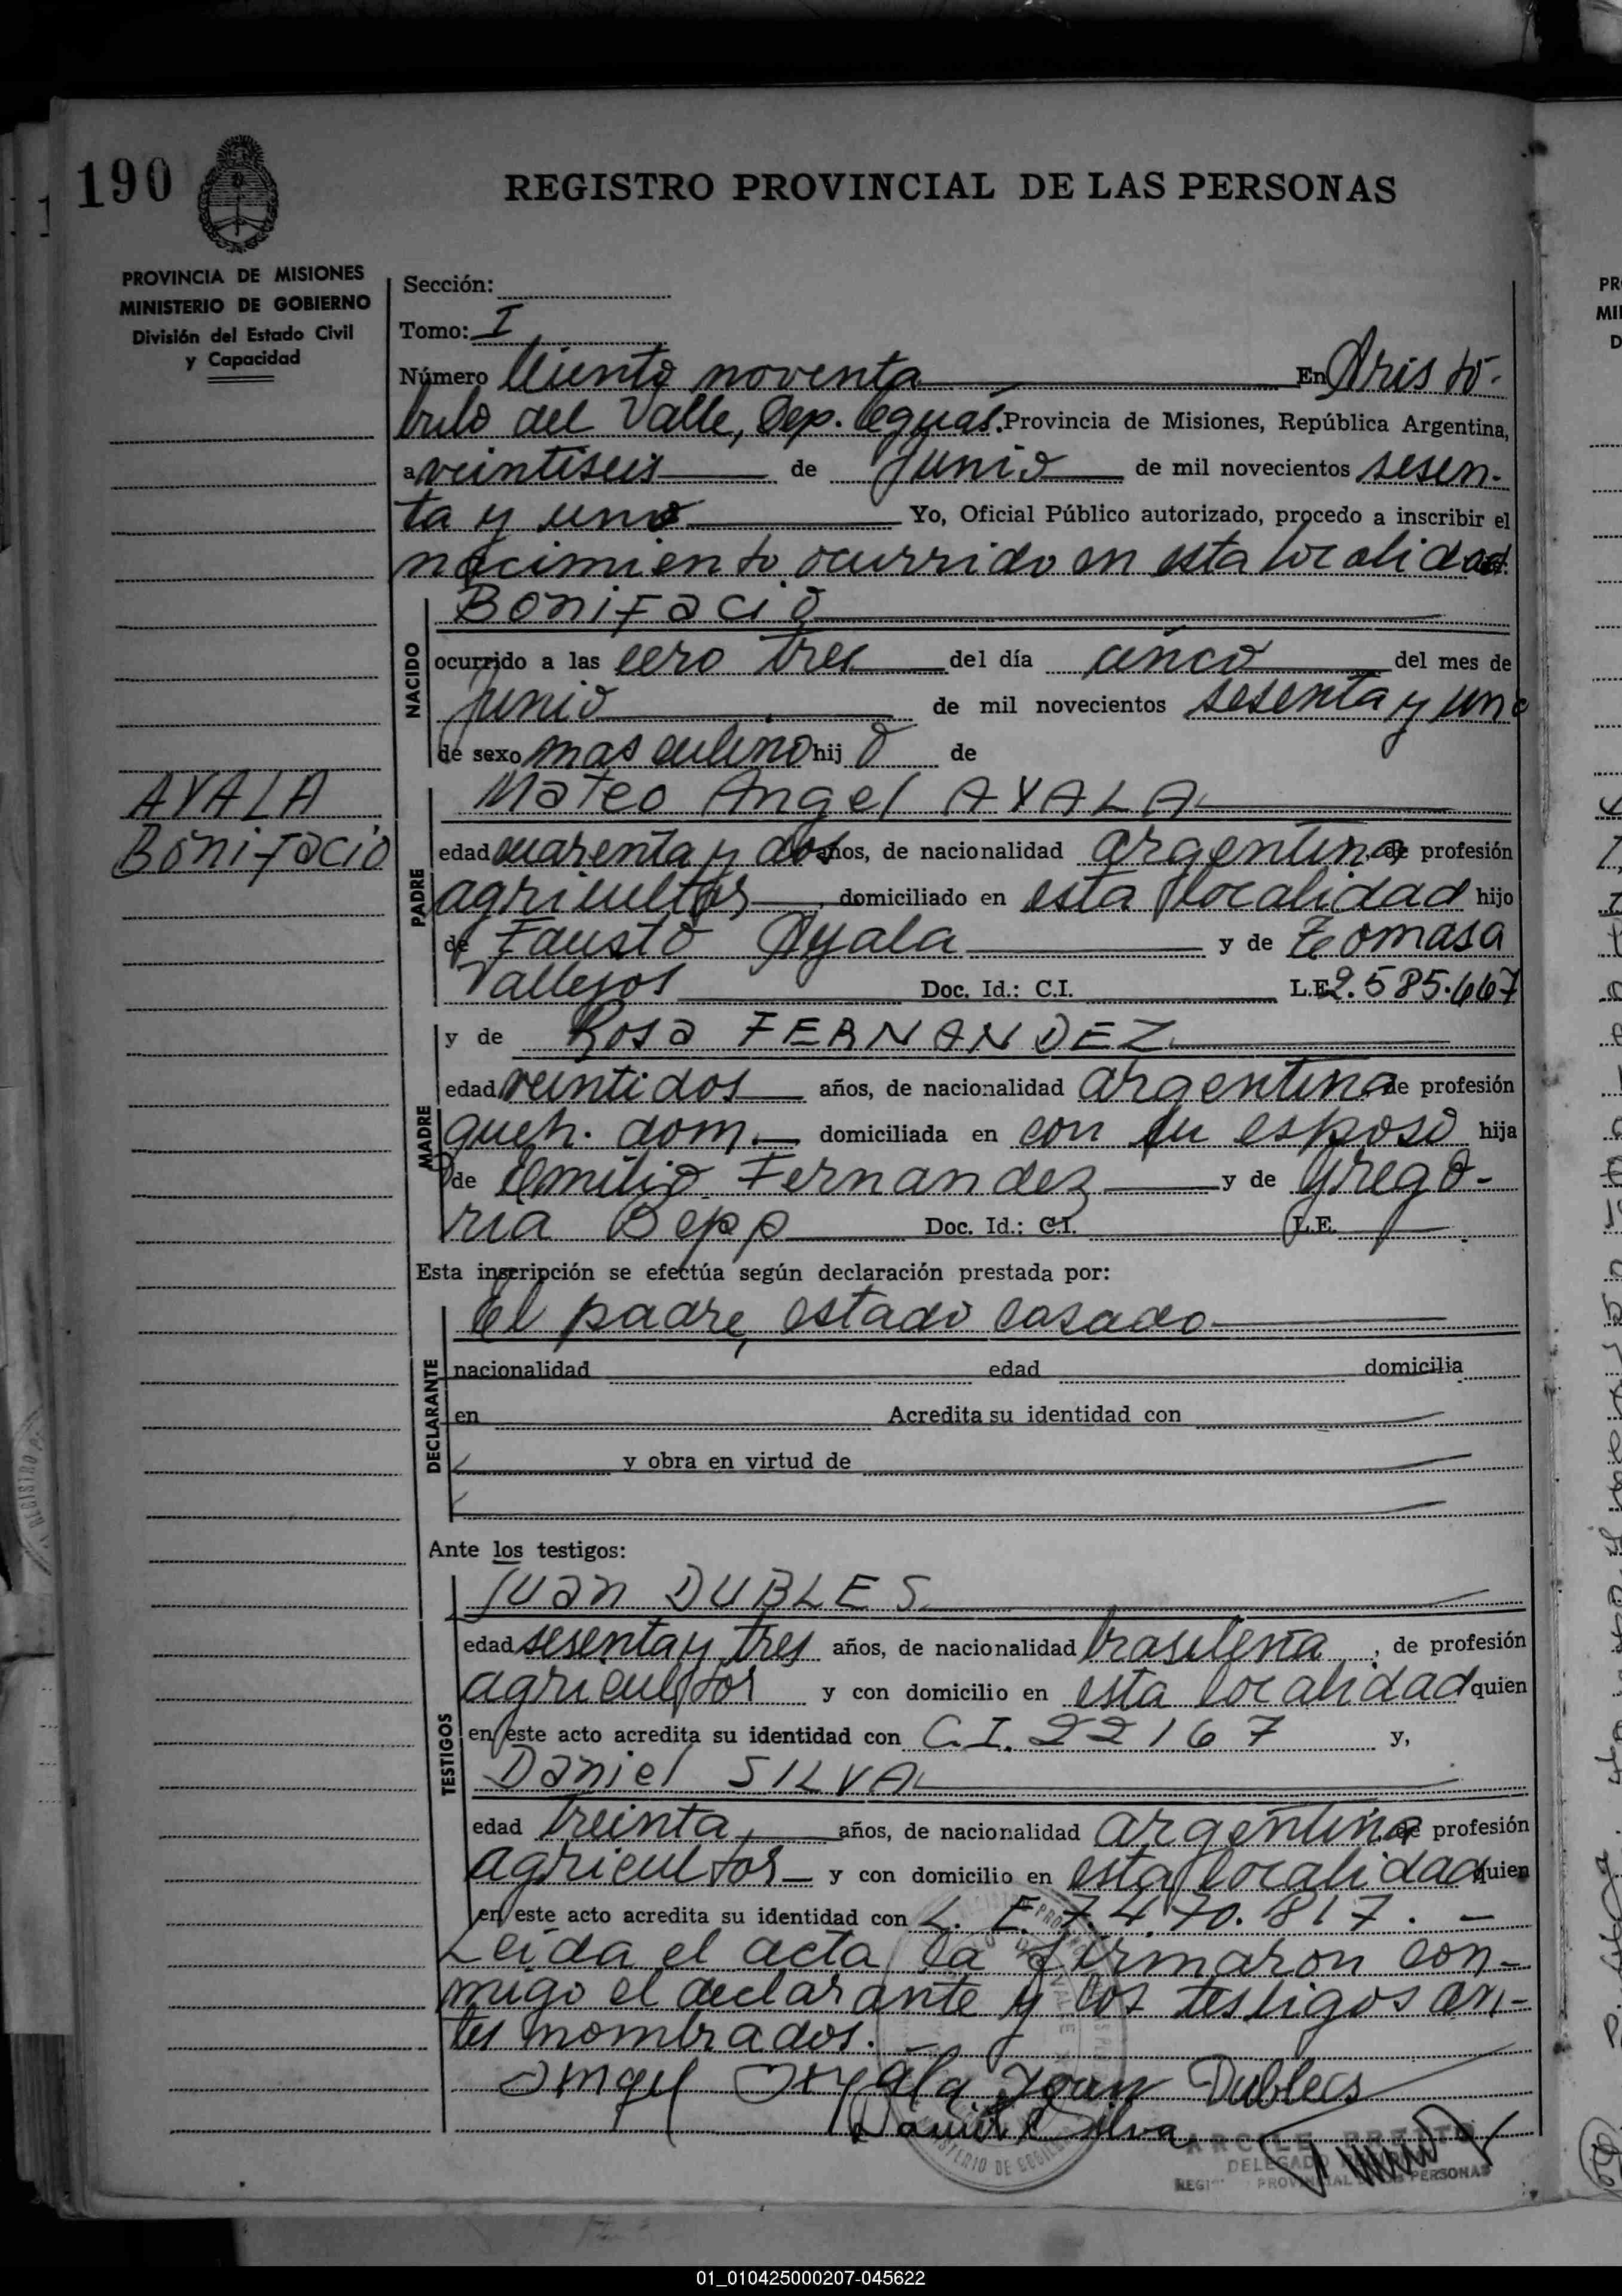 190
REGISTRO PROVINCIAL DE LAS PERSONAS
PROVINCIA DE MISIONES
MINISTERIO DE GOBIERNO
División del Estado Civil
y Capacidad
Sección:
Tomo: I
Número Ciento noventa En Aristó-
bulo del Valle, Dep. Cguás. Provincia de Misiones, República Argentina,
a veintiseis de junio de mil novecientos sesen-
ta y uno Yo, Oficial Público autorizado, procedo a inscribir el
nacimiento ocurrido en esta localidad
Bonifacio
NACIDO
ocurrido a las cero tres del día cinco del mes de
junio de mil novecientos sesenta y uno
de sexo masculino hijo de
AYALA
Bonifacio
Mateo Angel AYALA
PADRE
edad cuarenta y dos años, de nacionalidad argentina de profesión
agricultor, domiciliado en esta localidad hijo
de Fausto Ayala y de Teomasa
Vallejos Doc. Id.: C.I. L.E. 2.585.667
y de Rosa FERNANDEZ
MADRE
edad veintidos años, de nacionalidad argentina de profesión
queh. dom. domiciliada en con su esposo hija
de Emilio Fernandez y de Grego-
ria Bepp Doc. Id.: C.I. L.E.
Esta inscripción se efectúa según declaración prestada por:
El padre, estado casado
DECLARANTE
nacionalidad edad domicilia
en Acredita su identidad con
y obra en virtud de
Ante los testigos:
Juan DUBLES
TESTIGOS
edad sesenta y tres años, de nacionalidad brasileña, de profesión
agricultor y con domicilio en esta localidad quien
en este acto acredita su identidad con C.I. 22167 y,
Daniel SILVA
edad treinta, años, de nacionalidad argentina de profesión
agricultor y con domicilio en esta localidad quien
en este acto acredita su identidad con L. E. 7.470.817. -
Leída el acta la firmaron con-
migo el declarante y los testigos an-
tes nombrados.
Angel Ayala Joan Dublecs
Daniel Silva
DELEGADO
REGI PROVINCIAL DE LAS PERSONAS
01_010425000207-045622